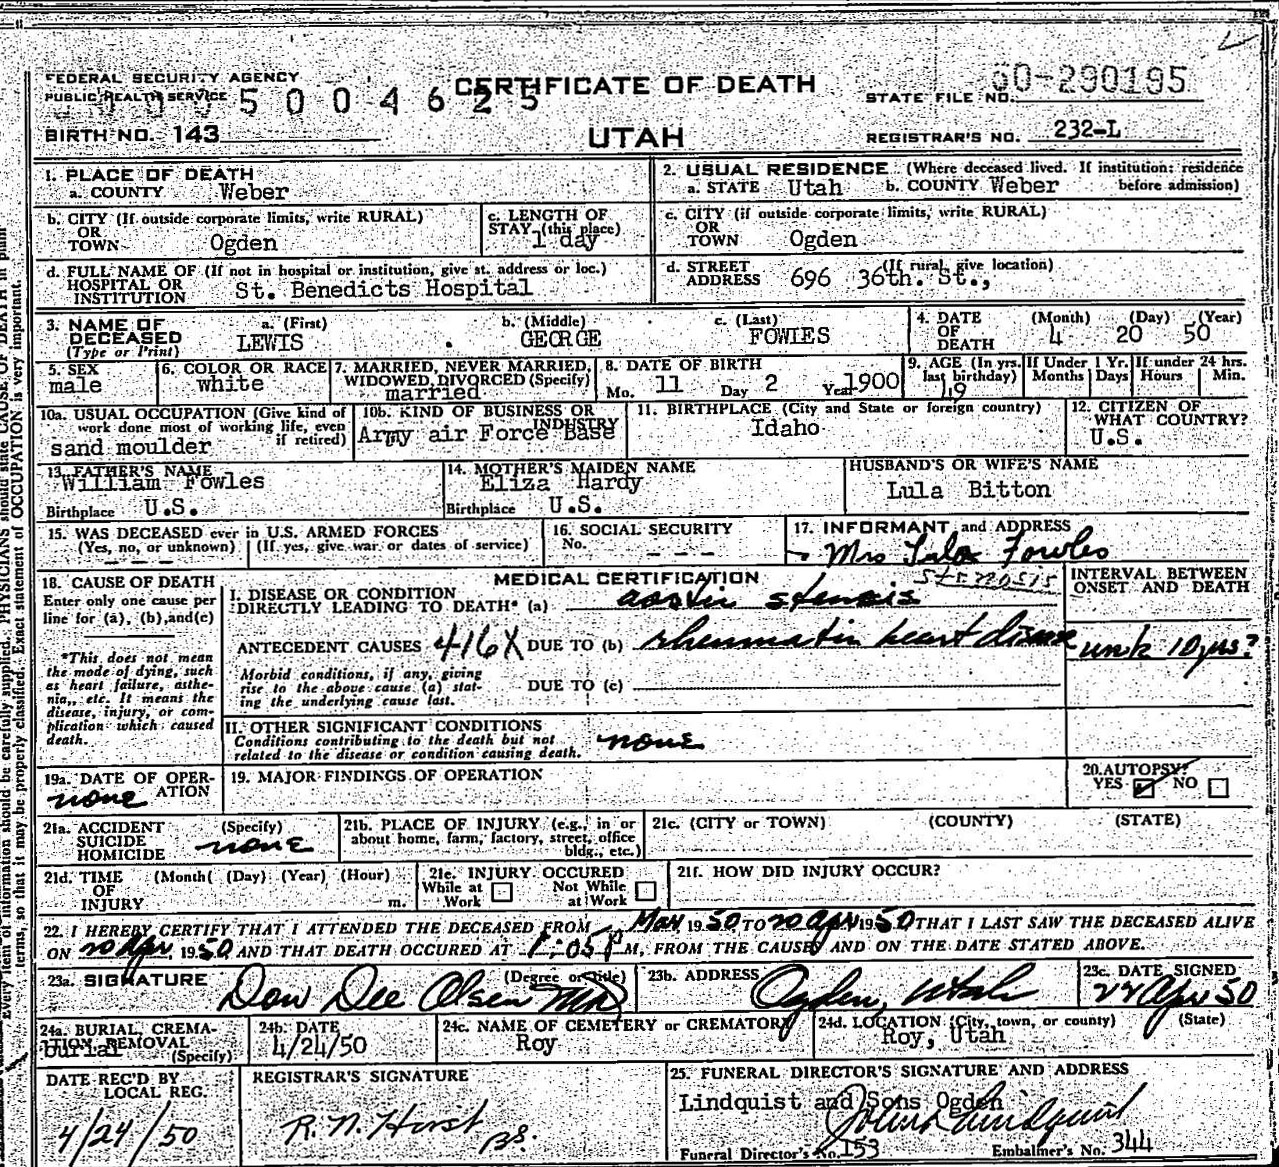 FEDERAL SECURITY AGENCY
PUBLIC HEALTH SERVICE 5004625
CERTIFICATE OF DEATH
STATE FILE NO. 60-290195
BIRTH NO. 143
UTAH
REGISTRAR'S NO. 232-L
1. PLACE OF DEATH
a. COUNTY Weber
2. USUAL RESIDENCE (Where deceased lived. If institution: residence before admission)
a. STATE Utah b. COUNTY Weber
b. CITY (If outside corporate limits, write RURAL)
OR TOWN Ogden
c. LENGTH OF STAY (this place)
1 day
c. CITY (if outside corporate limits, write RURAL)
OR TOWN Ogden
d. FULL NAME OF (If not in hospital or institution, give st. address or loc.)
HOSPITAL OR INSTITUTION St. Benedicts Hospital
d. STREET ADDRESS (If rural, give location)
696 36th. St.,
3. NAME OF DECEASED (Type or Print)
a. (First) LEWIS
b. (Middle) GEORGE
c. (Last) FOWLES
4. DATE OF DEATH (Month) (Day) (Year)
4 20 50
5. SEX
male
6. COLOR OR RACE
white
7. MARRIED, NEVER MARRIED, WIDOWED, DIVORCED (Specify)
married
8. DATE OF BIRTH
Mo. 11 Day 2 Year 1900
9. AGE (In yrs. last birthday) 49
If Under 1 Yr. Months Days
If under 24 hrs. Hours Min.
10a. USUAL OCCUPATION (Give kind of work done most of working life, even if retired)
sand moulder
10b. KIND OF BUSINESS OR INDUSTRY
Army air Force Base
11. BIRTHPLACE (City and State or foreign country)
Idaho
12. CITIZEN OF WHAT COUNTRY?
U.S.
13. FATHER'S NAME
William Fowles
Birthplace U.S.
14. MOTHER'S MAIDEN NAME
Eliza Hardy
Birthplace U.S.
HUSBAND'S OR WIFE'S NAME
Lula Bitton
15. WAS DECEASED ever in U.S. ARMED FORCES
(Yes, no, or unknown) (If yes, give war or dates of service)
- - -
16. SOCIAL SECURITY
No. - - -
17. INFORMANT and ADDRESS
Mrs Lula Fowles
18. CAUSE OF DEATH
Enter only one cause per line for (a), (b), and (c)
*This does not mean the mode of dying, such as heart failure, asthenia, etc. It means the disease, injury, or complication which caused death.
MEDICAL CERTIFICATION
stenosis
INTERVAL BETWEEN ONSET AND DEATH
I. DISEASE OR CONDITION
DIRECTLY LEADING TO DEATH* (a) aortic stenosis
ANTECEDENT CAUSES 416X DUE TO (b) rheumatic heart disease
unk 10 yrs?
Morbid conditions, if any, giving rise to the above cause (a) stating the underlying cause last.
DUE TO (c)
II. OTHER SIGNIFICANT CONDITIONS
Conditions contributing to the death but not related to the disease or condition causing death.
none
19a. DATE OF OPERATION
none
19. MAJOR FINDINGS OF OPERATION
20. AUTOPSY?
YES NO
21a. ACCIDENT SUICIDE HOMICIDE (Specify)
none
21b. PLACE OF INJURY (e.g., in or about home, farm, factory, street, office bldg., etc.)
21c. (CITY or TOWN) (COUNTY) (STATE)
21d. TIME OF INJURY (Month( (Day) (Year) (Hour) m.
21e. INJURY OCCURED
While at Work Not While at Work
21f. HOW DID INJURY OCCUR?
22. I HEREBY CERTIFY THAT I ATTENDED THE DECEASED FROM Mar 1950 TO 20 Apr 1950 THAT I LAST SAW THE DECEASED ALIVE
ON 20 Apr, 1950 AND THAT DEATH OCCURED AT :05 P M, FROM THE CAUSE, AND ON THE DATE STATED ABOVE.
23a. SIGNATURE (Degree or title)
Don Dee Olsen MD
23b. ADDRESS
Ogden, Utah
23c. DATE SIGNED
22 Apr 50
24a. BURIAL, CREMATION, REMOVAL (Specify)
burial
24b. DATE
4/24/50
24c. NAME OF CEMETERY or CREMATORY
Roy
24d. LOCATION (City, town, or county) (State)
Roy, Utah
DATE REC'D BY LOCAL REG.
4/24/50
REGISTRAR'S SIGNATURE
R. N. Hirst
25. FUNERAL DIRECTOR'S SIGNATURE AND ADDRESS
Lindquist and Sons Ogden
John Lindquist
Funeral Director's No. 153
Embalmer's No. 344
Every item of information should be carefully supplied. PHYSICIANS should state CAUSE OF DEATH in plain
terms, so that it may be properly classified. Exact statement of OCCUPATION is very important.